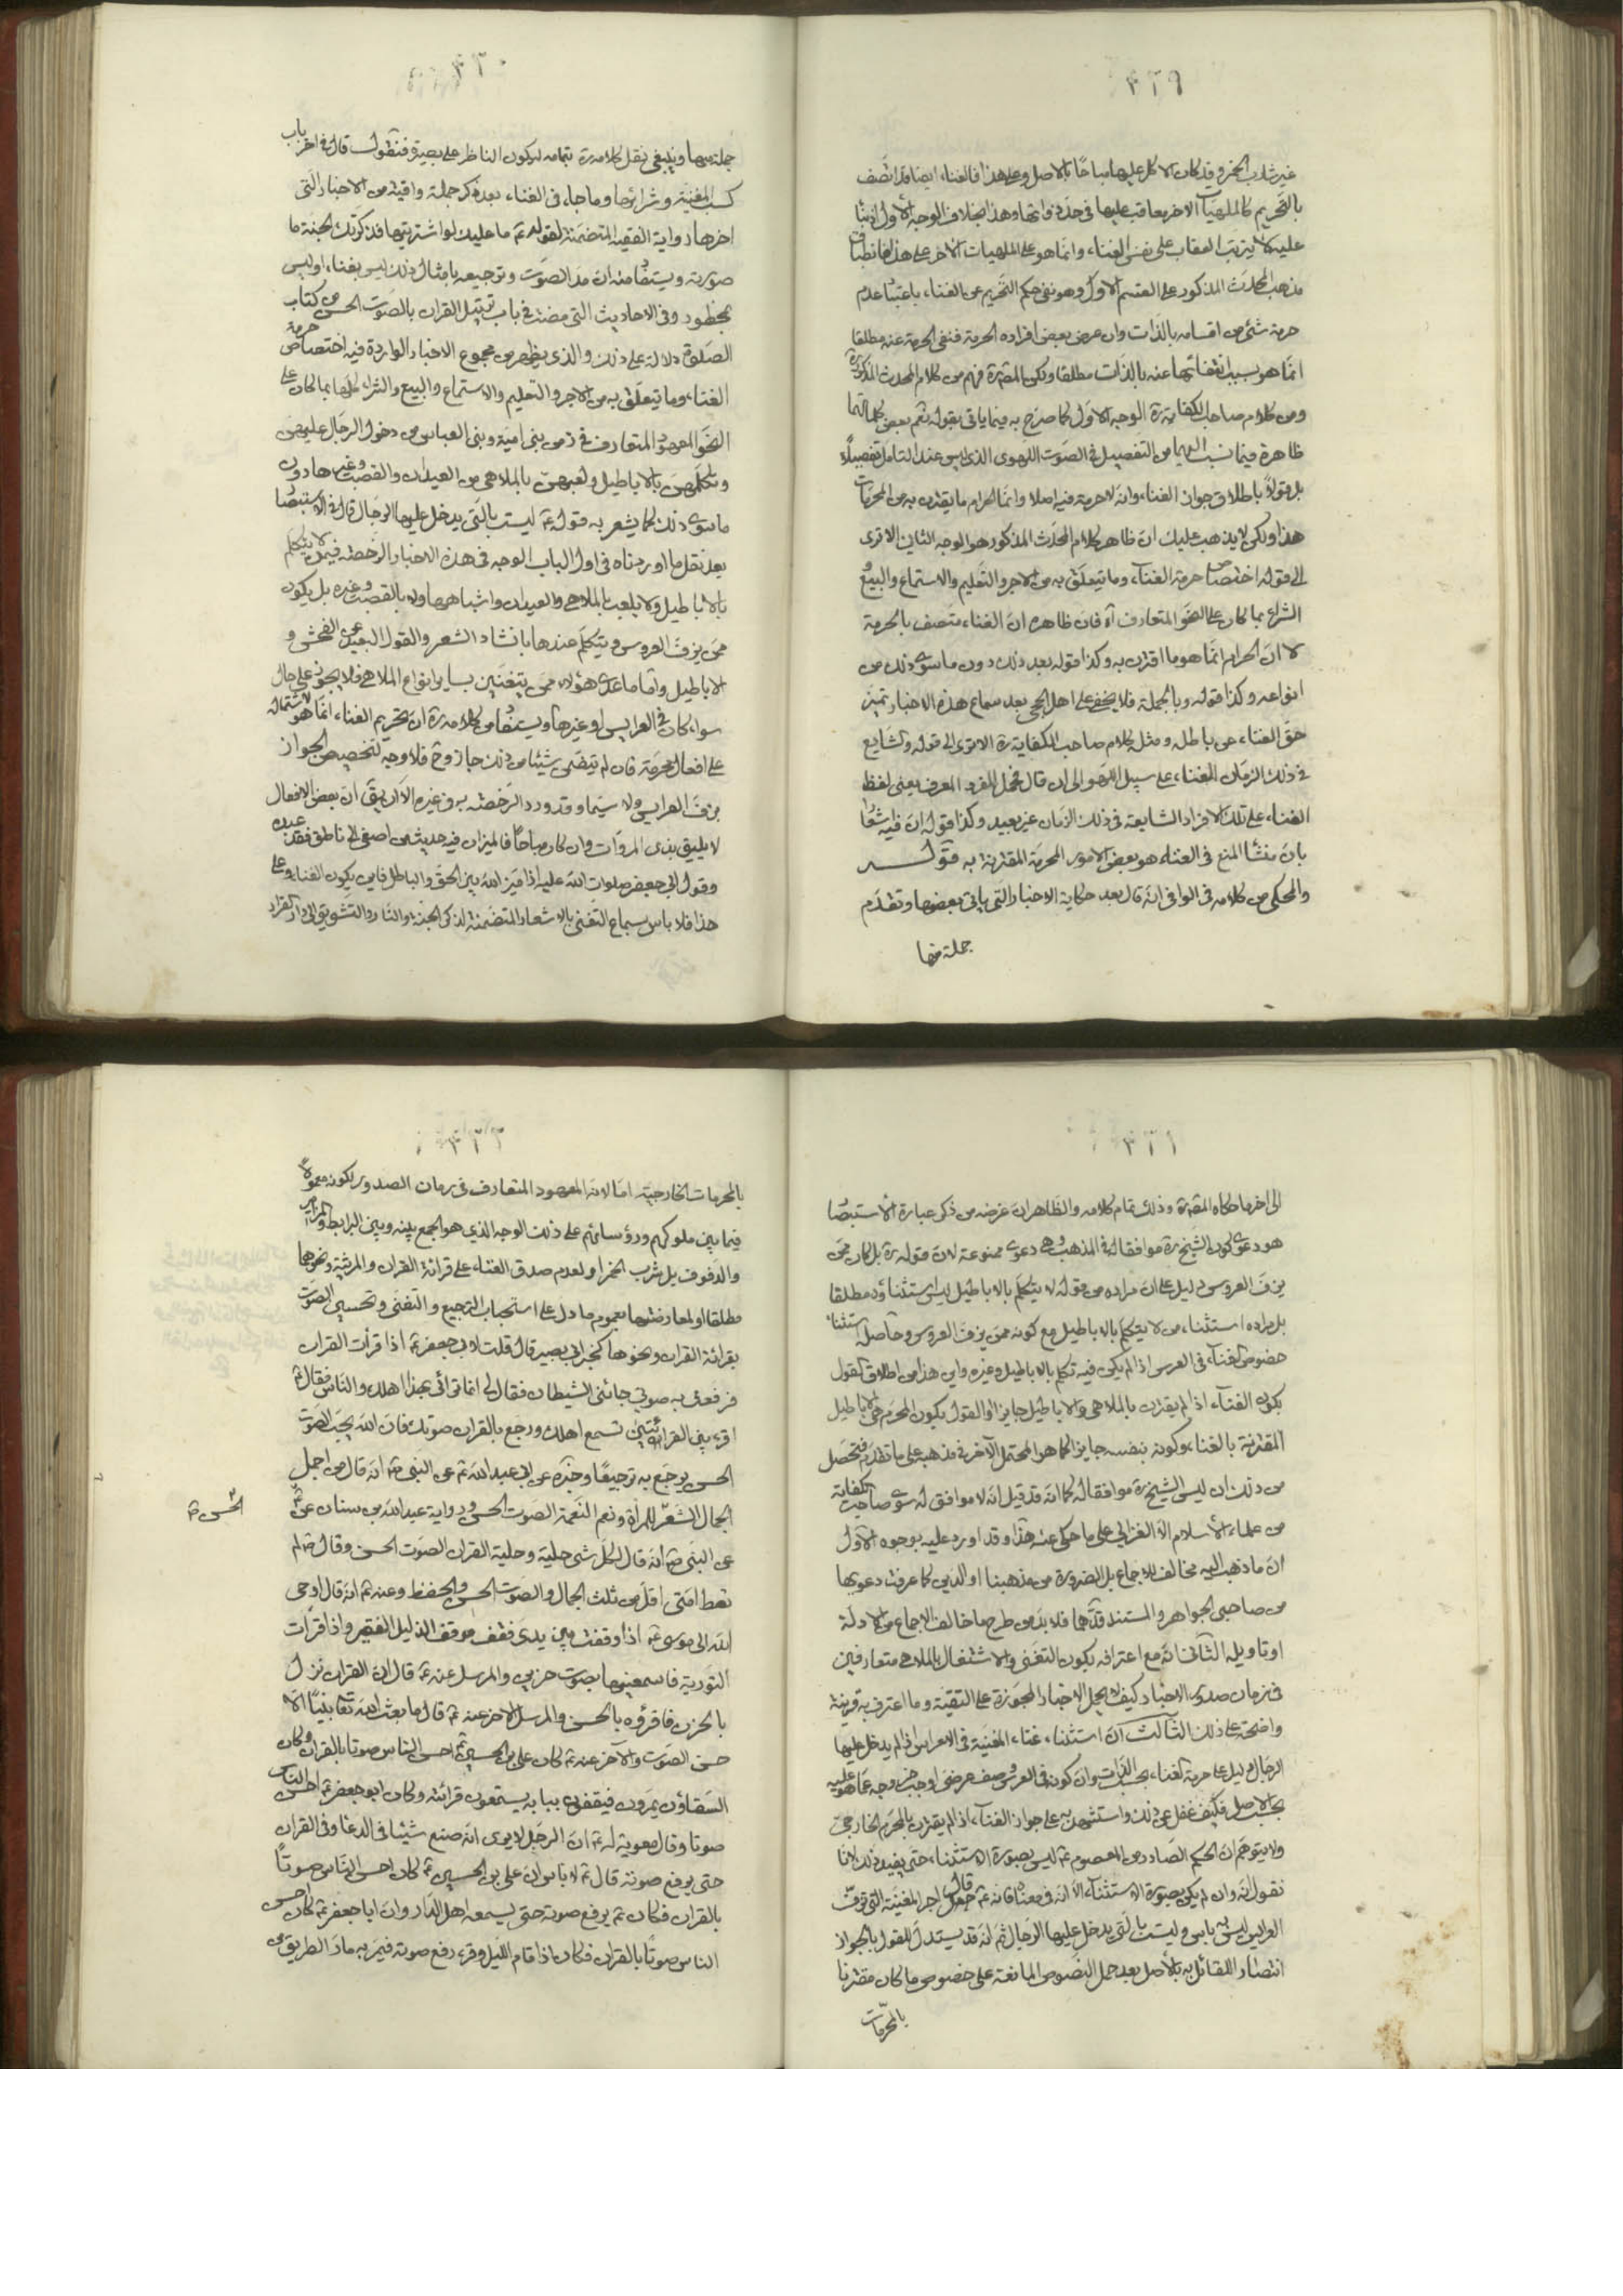 ٣٢٩
غير شارب الخمر وقد كان الاكل عليها مباحًا بالاصل وعلى هذا فالغناء ايضا قد اتصف
بالتحريم كالملهيات الاخر يعاقب عليها في حد ذواتها وهذا بخلاف الوجه الاول اذ بناءً
عليه لا يترتب العقاب على نفس الغناء وانما هو على الملهيات الاخر على هذا فانطباق
مذهب المحدث المذكور على القسم الاول وهو نفي حكم التحريم عن الغناء باعتبار عدم
حرمة شئ من اقسامه بالذات وان عرض بعض افراده الحرمة فنفى الحرمة عنه مطلقا
انما هو بسبب انتفائها عنه بالذات مطلقا ولكن المقرة فهم من كلام المحدث المذكور
ومن كلام صاحب الكفاية ره الوجه الاول كما صرح به فيما ياتي بقوله نعم بعض كلماتهما
ظاهرة فيما نسب اليهما من التفصيل في الصوت اللهوى الذى ليس عند التامل تفصيلاً
بل قولاً باطلاق جواز الغناء وانه لا حرمة فيه اصلا وانما الحرام ما يقترن به من المحرمات
هذا ولكن لا يذهب عليك ان ظاهر كلام المحدث المذكور هو الوجه الثاني الا ترى
الى قوله اختصاص حرمة الغناء وما يتعلق به من الاجر والتعليم والاستماع والبيع و
الشراء بما كان على النحو المتعارف آه فان ظاهره ان الغناء متصف بالحرمة
لا ان الحرام انما هو ما اقترن به وكذا قوله بعد ذلك دون ما سوى ذلك من
انواعه وكذا قوله وبالجملة فلا يخفى على اهل الحجى بعد سماع هذه الاخبار تميز
حق الغناء عن باطله ومثل كلام صاحب الكفاية ره الا ترى الى قوله والشايع
في ذلك الزمان الغناء على سبيل اللهو الى ان قال فحمل المفرد المعرف يعنى لفظ
الغناء على تلك الافراد الشايعة في ذلك الزمان غير بعيد وكذا قوله ان فيه اشعارا
بان منشأ المنع في الغناء هو بعض الامور المحرمة المقترنة به قوله
والمحكى من كلامه في الوافى انه قال بعد حكاية الاخبار التى ياتى بعضها وتقدم
جملة منها
٣٣٠
جملة منها وينبغى نقل كلامه ره بتمامه ليكون الناظر على بصيرة فنقول قال في اخر باب
كسب المغنية وشرائها وما جاء في الغناء بعد ذكر جملة وافية من الاخبار التى
اخرها رواية الفقيه المتضمنة لقوله ع ما عليك لو اشتريتها فذكرتك الجنة ما
صورته ويستفاد منه ان مد الصوت وترجيعه بامثال ذلك ليس بغناء او ليس
بمحظور وفى الاحاديث التى مضت في باب ترتيل القران بالصوت الحسن من كتاب
الصلوة دلالة على ذلك والذى يظهر من مجموع الاخبار الواردة فيه اختصاص حرمة
الغناء وما يتعلق به من الاجر والتعليم والاستماع والبيع والشراء كلها بما كان على
النحو المعهود المتعارف في زمن بنى امية وبنى العباس من دخول الرجال عليهن
وتكلمهن بالاباطيل ولعبهن بالملاهى من العيدان والقصب وغيرها دون
ما سوى ذلك كما يشعر به قوله ع ليست بالتى يدخل عليها الرجال قال في الاستبصار
بعد نقل ما اوردناه في اول الباب الوجه في هذه الاخبار الرخصة فيمن لا يتكلم
بالاباطيل ولا يلعب بالملاهى والعيدان واشباهها ولا بالقصب وغيره بل يكون
ممن يزف العروس ويتكلم عندها بانشاد الشعر والقول البعيد عن الفحش و
الاباطيل واما ما عدى هؤلاء ممن يتغنين بساير انواع الملاهى فلا يجوز على حال
سواء كان في العرايس او غيرها ويستفاد من كلامه ره ان تحريم الغناء انما هو لاشتماله
على افعال محرمة فان لم يتضمن شيئا من ذلك جاز وح فلا وجه لتخصيص الجواز
بزف العرايس ولا سيما وقد ورد الرخصة به في غيره الا ان يق ان بعض الافعال
لا يليق بذى المروات وان كان مباحًا فالميزان فيه حديث من اصغى الى ناطق فقد عبده
وقول ابى جعفر صلوات الله عليه اذا ميز الله بين الحق والباطل فاين يكون الغناء وعلى
هذا فلا باس بسماع التغنى بالاشعار المتضمنة لذكر الجنة والنار والتشويق الى دار القرار
٣٣١
الى اخر ما حكاه المقرة وذلك تمام كلامه والظاهر ان غرضه من ذكر عبارة الاستبصار
هو دعوى كون الشيخ ره موافقا له في المذهب وهى دعوى ممنوعة لان قوله ره بل كان ممن
يزف العروس دليل على ان مراده من قوله لا يتكلم بالاباطيل ليس استثناؤه مطلقا
بل مراده استثناء من لا يتكلم بالاباطيل مع كونه ممن يزف العروس وحاصله استثناء
خصوص الغناء في العرس اذا لم يكن فيه تكلم بالاباطيل وغيره واين هذا من اطلاق القول
بكون الغناء اذا لم يقترن بالملاهى والاباطيل جايزا او القول بكون المحرم هى الاباطيل
المقترنة بالغناء وكونه بنفسه جايزا كما هو المحتمل الاخر في مذهبه على ما تقدم فتحصل
من ذلك ان ليس الشيخ ره موافقا له كما انه قد قيل انه لا موافق له سوى صاحب الكفاية
من علماء الاسلام الا الغزالى على ما حكى عنه هذا وقد اورد عليه بوجوه الاول
ان ما ذهب اليه مخالف للاجماع بل الضرورة من مذهبنا او الدين كما عرفت دعويها
من صاحبى الجواهر والمستند قدهما فلا بد من طرح ما خالف الاجماع من الادلة
او تاويله الثانى انه مع اعترافه بكون التغنى والاشتغال بالملاهى متعارفين
في زمان صدور الاخبار كيف لا يحمل الاخبار المجوزة على التقية وما اعترف به قرينة
واضحة على ذلك الثالث ان استثناء غناء المغنية في الاعراس اذا لم يدخل عليها
الرجال دليل على حرمة الغناء بحسب الذات وان كونه في العرس وصف عرضى اوجب خروجه عما هو عليه
بحسب الاصل فكيف غفل عن ذلك واستشهد به على جواز الغناء اذا لم يقترن بالمحرم الخارجى
ولا يتوهم ان الحكم الصادر من المعصوم ع ليس بصورة الاستثناء حتى يفيد ذلك لانا
نقول انه وان لم يكن بصورة الاستثناء الا انه في معناه فانه ع قال اجر المغنية التى تزف
العرايس ليس به باس وليست بالتى يدخل عليها الرجال ثم انه قد يستدل للقول بالجواز
انتصارا للقائل به بالاصل بعد حمل النصوص المانعة على خصوص ما كان مقترنا
بالمحرمات
٣٣٢
بالمحرمات الخارجية اما لانه المعهود المتعارف في زمان الصدور لكونه معمولاً
فيما بين ملوكهم ورؤسائهم على ذلك الوجه الذي هو الجمع بينه وبين البرابط والمزامير
والدفوف بل شرب الخمر او لعدم صدق الغناء على قرائة القران والمرثية ونحوها
مطلقا او لمعارضتها بعموم ما دل على استحباب الترجيع والتغنى وتحسين الصوت
بقرائة القران ونحوها كخبر ابى بصير قال قلت لابى جعفر ع اذا قرأت القران
فرفعت به صوتى جائنى الشيطان فقال لى انما ترائى بهذا اهلك والناس فقال ع
اقرء بين القرائتين تسمع اهلك ورجع بالقران صوتك فان الله يحب الصوت
الحسن يرجع به ترجيعًا وخبره عن ابى عبد الله ع عن النبى ص انه قال من اجمل
الجمال الشعر للمرأة ونعم النغمة الصوت الحسن ورواية عبد الله بن سنان عنه ع
الحسن
عن النبى ص انه قال لكل شئ حلية وحلية القران الصوت الحسن وقال ص لم
تعط امتى اقل من ثلث الجمال والصوت الحسن والحفظ وعنه ع انه قال اوحى
الله الى موسى ع اذا وقفت بين يدى فقف موقف الذليل الفقير واذا قرأت
التورية فاسمعنيها بصوت حزين والمرسل عنه ع قال ان القران نزل
بالحزن فاقرؤه بالحزن والمرسل الاخر عنه ع قال ما بعث الله تعا نبيًا الا
حسن الصوت والآخر عنه ع كان على بن الحسين ع احسن الناس صوتا بالقران وكان
السقاؤن يمرون فيقفون ببابه يستمعون قرائته وكان ابو جعفر ع احسن الناس
صوتا وقال معوية له ع ان الرجل لا يرى انه صنع شيئا في الدعا وفى القران
حتى يرفع صوته قال ع لا باس ان على بن الحسين ع كان احسن الناس صوتاً
بالقران فكان ع يرفع صوته حتى يسمعه اهل الدار وان ابا جعفر ع كان احسن
الناس صوتًا بالقران فكان اذا قام الليل وقرء رفع صوته فيمر به مار الطريق من